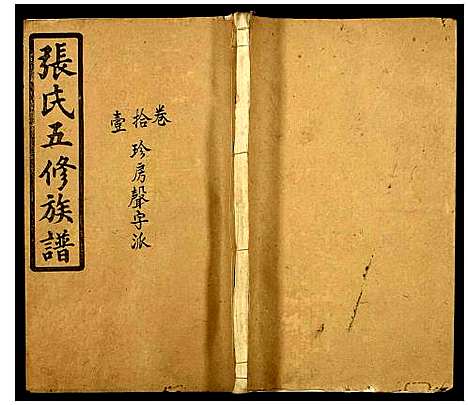 張氏五修族譜
卷
拾 珍房聲字派
壹